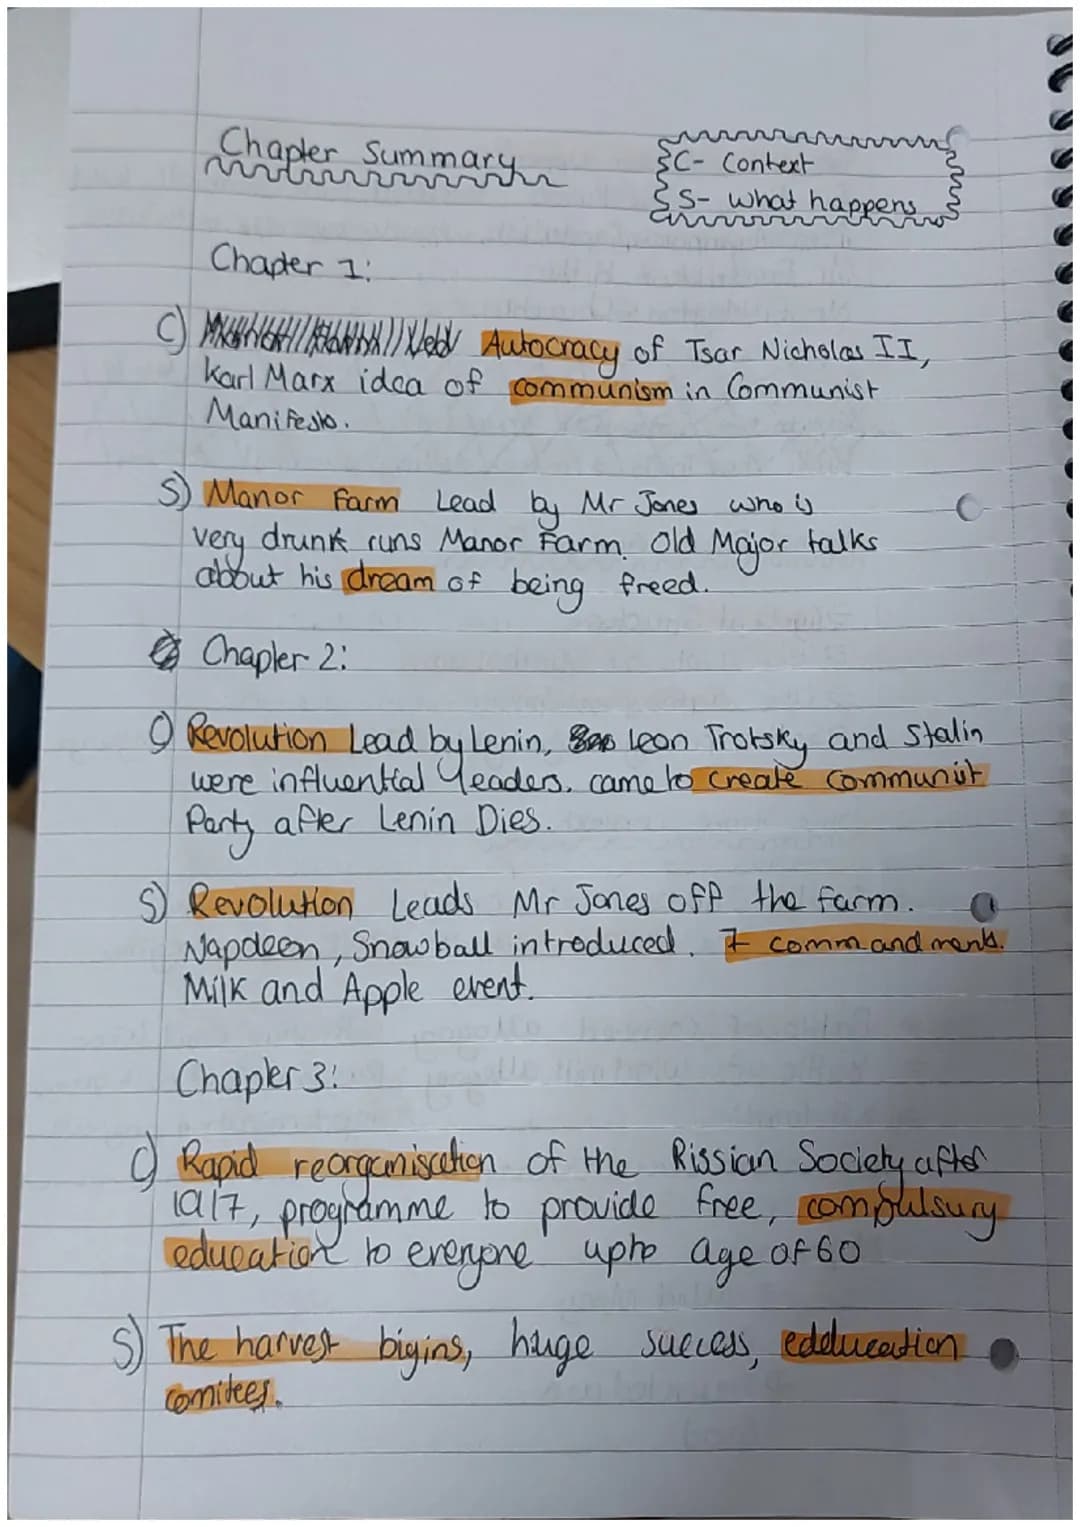 Chapter Summary
C- Context
S- what happens
Chapter 1:
C) Autocracy of Tsar Nicholas II,
Karl Marx idea of communism in Communist
Manifesto.
S) Manor Farm Lead by Mr Jones who is
very drunk runs Manor Farm. Old Major talks
about his dream of being freed.
Chapter 2:
C) Revolution Lead by Lenin, leon Trotsky and Stalin
were influential leaders. came to create communist
Party after Lenin Dies.
S) Revolution Leads Mr Jones off the farm.
Napoleon, Snowball introduced. 7 commandments.
Milk and Apple event.
Chapter 3:
C) Rapid reorganisation of the Rissian Society after
1917, programme to provide free, compulsury
education to everyone upto age of 60
S) The harvest bigins, huge success, edducation
comitees.